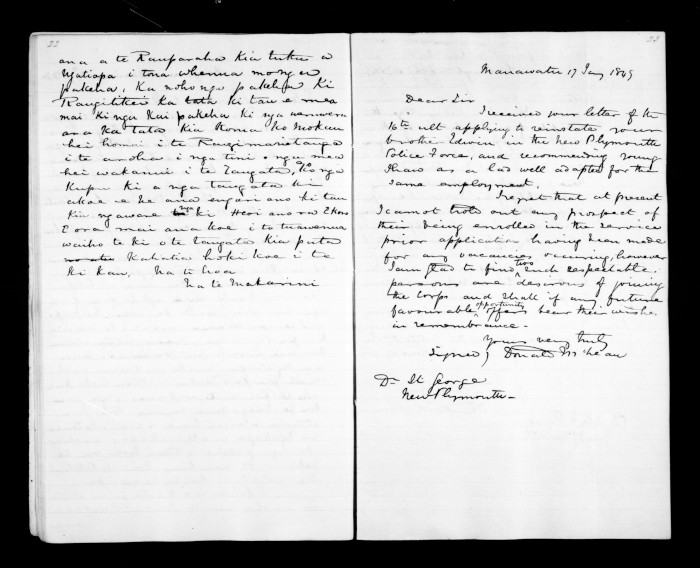 22
ana a te Rauparaha kia tuku a
Ngatiapa i tona whenua mo nga
pakeha, ka noho nga pakeha ki
Rangitikei ka tata ki tau e mea
mai ki nga kai pakeha ki nga
ana ka tata kia Roma ko Mokau
hei homai i te Rangimarietanga
i te aroha i nga tini o nga mea
hei wakanui i te Tangata, ko nga
Kupu ki a nga tangata ki
akoe e he ana engari ano ki tau
kia ngawari nga ki
E ora mai ana koe i to tuawenua
waiho te ki o te Tangata kia puta
Kahatia hoki koe i te
ki kau, Na te hoa
Na te Makarini
23
Manawatu 17 Jany 1849
Dear Sir
I received your letter of the
16th ult applying to reinstate your
brother Edwin in the New Plymouth
Police Force, and recommending young
Shaw as a lad well adapted for the
same employment.
I regret that at present
I cannot hold out any prospect of
their being enrolled in the service
prior application having been made
for any vacancies occuring, however
I am glad to find two such respectable
persons are desirous of joining
the Corps and shall if any future
favourable opportunity offers bear their wishes
in remembrance.
Yours very truly
Signed) Donald McLean
Dr St George
New Plymouth